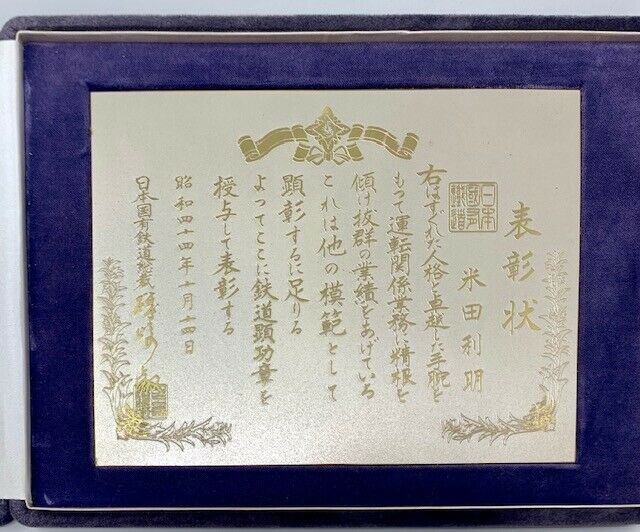 表彰状
日本国有鉄道
米田利明
右はすぐれた人格と卓越した手腕を
もつて運転関係業務に精根を
傾け抜群の業績をあげている
これは他の模範として
顕彰するに足りる
よってここに鉄道顕功章を
授与して表彰する
昭和四十四年十月十四日
日本国有鉄道総裁